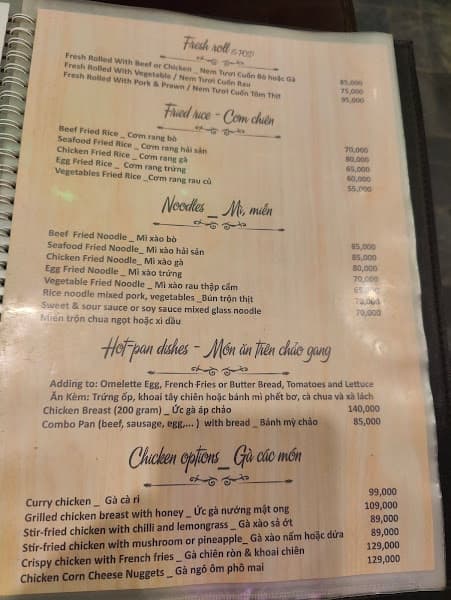 Fresh roll (5 PCS)
Fresh Rolled With Beef or Chicken _ Nem Tươi Cuốn Bò hoặc Gà 85,000
Fresh Rolled With Vegetable / Nem Tươi Cuốn Rau 75,000
Fresh Rolled With Pork & Prawn / Nem Tươi Cuốn Tôm Thịt 95,000
Fried rice - Cơm chiên
Beef Fried Rice _ Cơm rang bò 70,000
Seafood Fried Rice _ Cơm rang hải sản 80,000
Chicken Fried Rice _ Cơm rang gà 65,000
Egg Fried Rice _ Cơm rang trứng 60,000
Vegetables Fried Rice _Cơm rang rau củ 55,000
Noodles _ Mì, miến
Beef Fried Noodle _ Mì xào bò 85,000
Seafood Fried Noodle_ Mì xào hải sản 85,000
Chicken Fried Noodle _ Mì xào gà 80,000
Egg Fried Noodle _ Mì xào trứng 70,000
Vegetable Fried Noodle _ Mì xào rau thập cẩm 65,000
Rice noodle mixed pork, vegetables _Bún trộn thịt 70,000
Sweet & sour sauce or soy sauce mixed glass noodle 70,000
Miến trộn chua ngọt hoặc xì dầu
Hot-pan dishes - Món ăn trên chảo gang
Adding to: Omelette Egg, French Fries or Butter Bread, Tomatoes and Lettuce
Ăn Kèm: Trứng ốp, khoai tây chiên hoặc bánh mì phết bơ, cà chua và xà lách
Chicken Breast (200 gram) _ Ức gà áp chảo 140,000
Combo Pan (beef, sausage, egg,... ) with bread _ Bánh mỳ chảo 85,000
Chicken options_ Gà các món
Curry chicken _ Gà cà ri 99,000
Grilled chicken breast with honey _ Ức gà nướng mật ong 109,000
Stir-fried chicken with chilli and lemongrass _ Gà xào sả ớt 89,000
Stir-fried chicken with mushroom or pineapple_ Gà xào nấm hoặc dứa 89,000
Crispy chicken with French fries _ Gà chiên ròn & khoai chiên 129,000
Chicken Corn Cheese Nuggets _ Gà ngô ôm phô mai 129,000